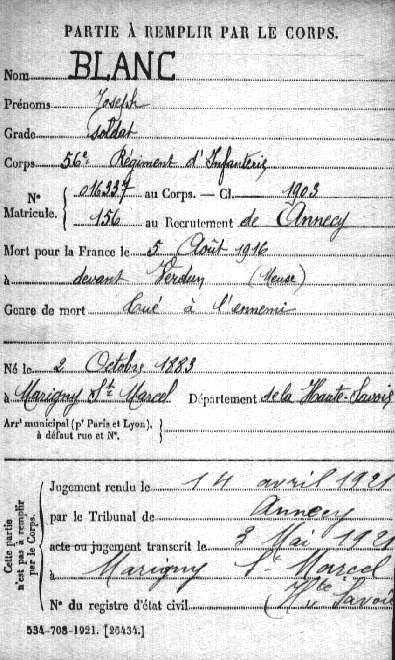 PARTIE À REMPLIR PAR LE CORPS.
Nom BLANC
Prénoms Joseph
Grade soldat
Corps 56e Régiment d'Infanterie
N° Matricule. { 016337 au Corps. — Cl. 1903
156 au Recrutement de Annecy
Mort pour la France le 5 Août 1916
à devant Verdun (Meuse)
Genre de mort tué à l'ennemi
Né le 2 Octobre 1883
à Marigny St Marcel Département de la Haute-Savoie
Arrt municipal (pr Paris et Lyon), à défaut rue et N°. }
Cette partie n'est pas à remplir par le Corps. {
Jugement rendu le 14 avril 1921
par le Tribunal de Annecy
acte ou jugement transcrit le 3 Mai 1921
à Marigny St Marcel
N° du registre d'état civil (Hte Savoie
534-708-1921. [26434.]